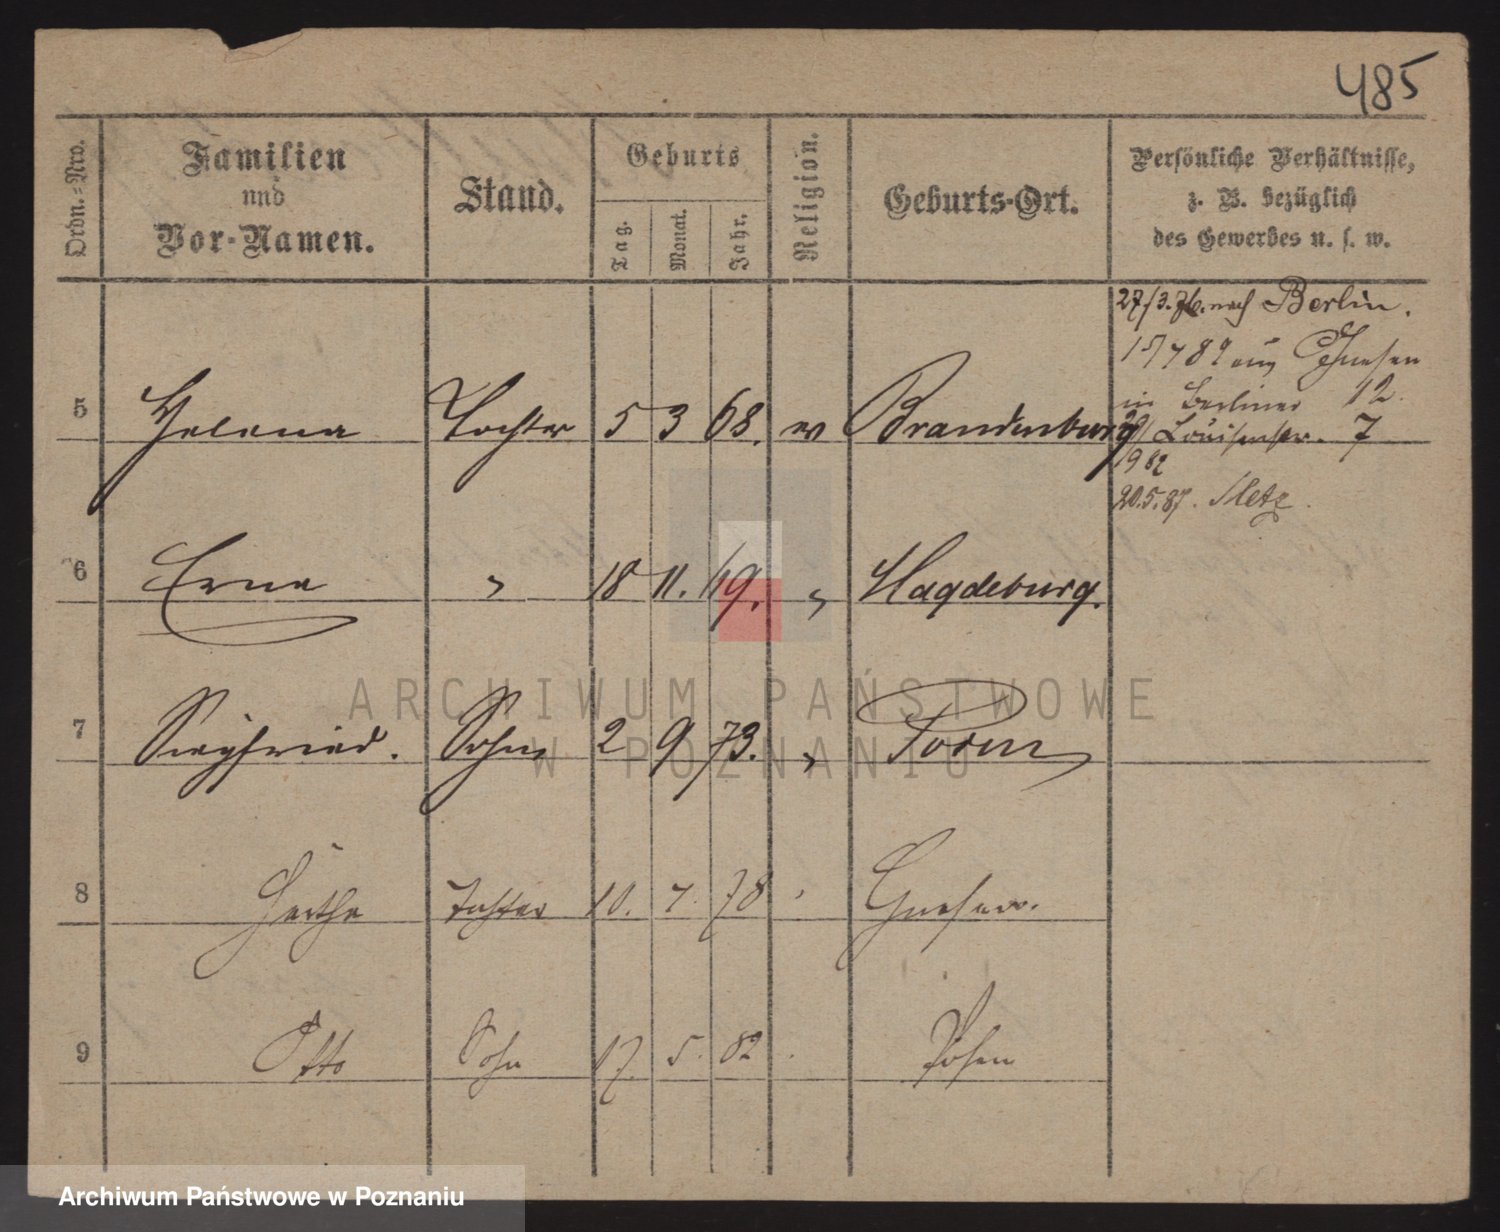 485
Ordn.-Nro.
Familien
und
Vor-Namen.
Stand.
Geburts
Tag.
Monat.
Jahr.
Religion.
Geburts-Ort.
Persönliche Verhältnisse,
z. B. bezüglich
des Gewerbes u. s. w.
27/3.76. nach Berlin.
89 aus Gnesen
in Berliner 12.
Louisenstr. 7
1982
20.5.87. Metz.
5 Helena Tochter 5 3 68. ev Brandenburg
6 Erna " 18 11. 69. " Magdeburg.
7 Siegfried. Sohn 2 9 73. " Posen
8 Herthe Tochter 10. 7. 78 Gnesen.
9 Otto Sohn 17. 5. 82 Posen
ARCHIWUM PAŃSTWOWE
W POZNANIU
Archiwum Państwowe w Poznaniu